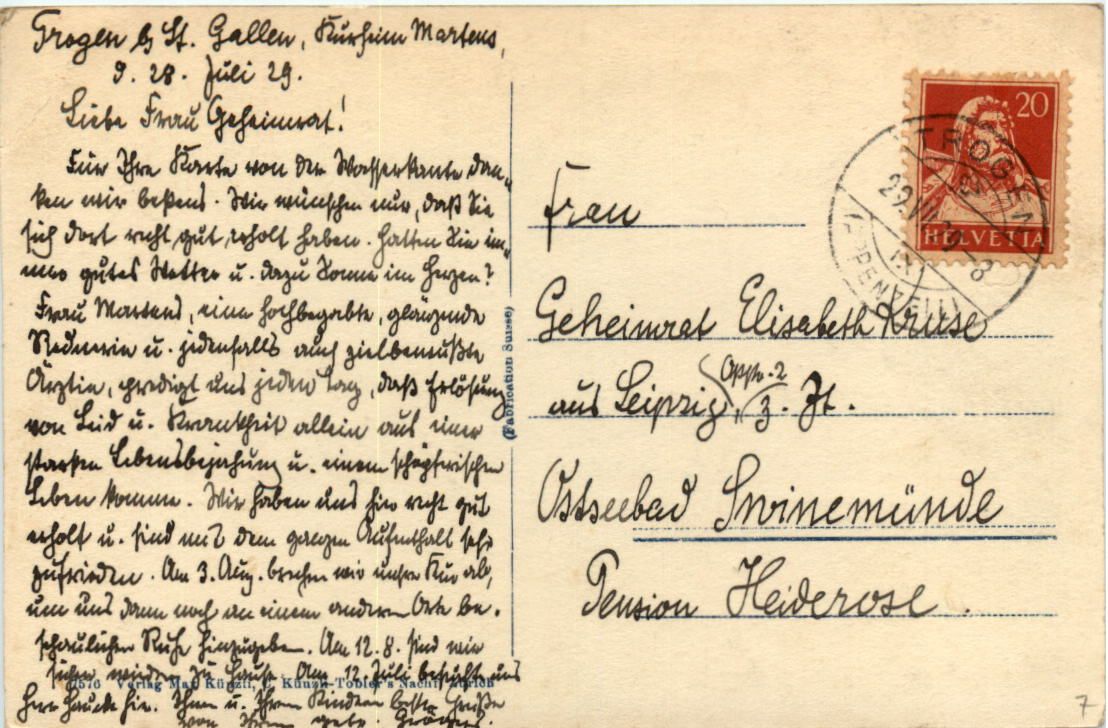 Trogen b/ St. Gallen, Kurheim Martens,
d. 28. Juli 29.
Liebe Frau Geheimrat!
Für Ihre Karte von der Wasserkante dan-
ken wir bestens. Wir wünschen nur, daß Sie
sich dort recht gut erholt haben. Hatten Sie im-
mer gutes Wetter u. dazu Sonne im Herzen?
Frau Martens, eine hochbegabte, glänzende
Rednerin u. jedenfalls auch zielbewußte
Ärztin, predigt uns jeden Tag, daß Erlösung
von Leid u. Krankheit allein aus einer
starken Lebensbejahung u. einem schöpferischen
Leben komme. Wir haben uns hier recht gut
erholt u. sind mit dem ganzen Aufenthalt sehr
zufrieden. Am 3. Aug. brechen wir unsre Kur ab,
um uns dann noch an einem anderen Orte be-
schaulicher Ruhe hinzugeben. Am 12.8. sind wir
sicher wieder zu Hause. Am 12. Juli besuchte uns
Herr Hauck hier. Ihnen u. Ihren Kindern beste Grüße
von Ihrem
11576 Verlag Max Künzli, C. Künzli-Tobler's Nachf. Zürich
(Fabrication Suisse)
20
HELVETIA
TROGEN
29.VII.29-8
IX
(APPENZELL)
Frau
Geheimrat Elisabeth Kruse
aus Leipzig, z. Zt.
Ostseebad Swinemünde
Pension Heiderose.
7